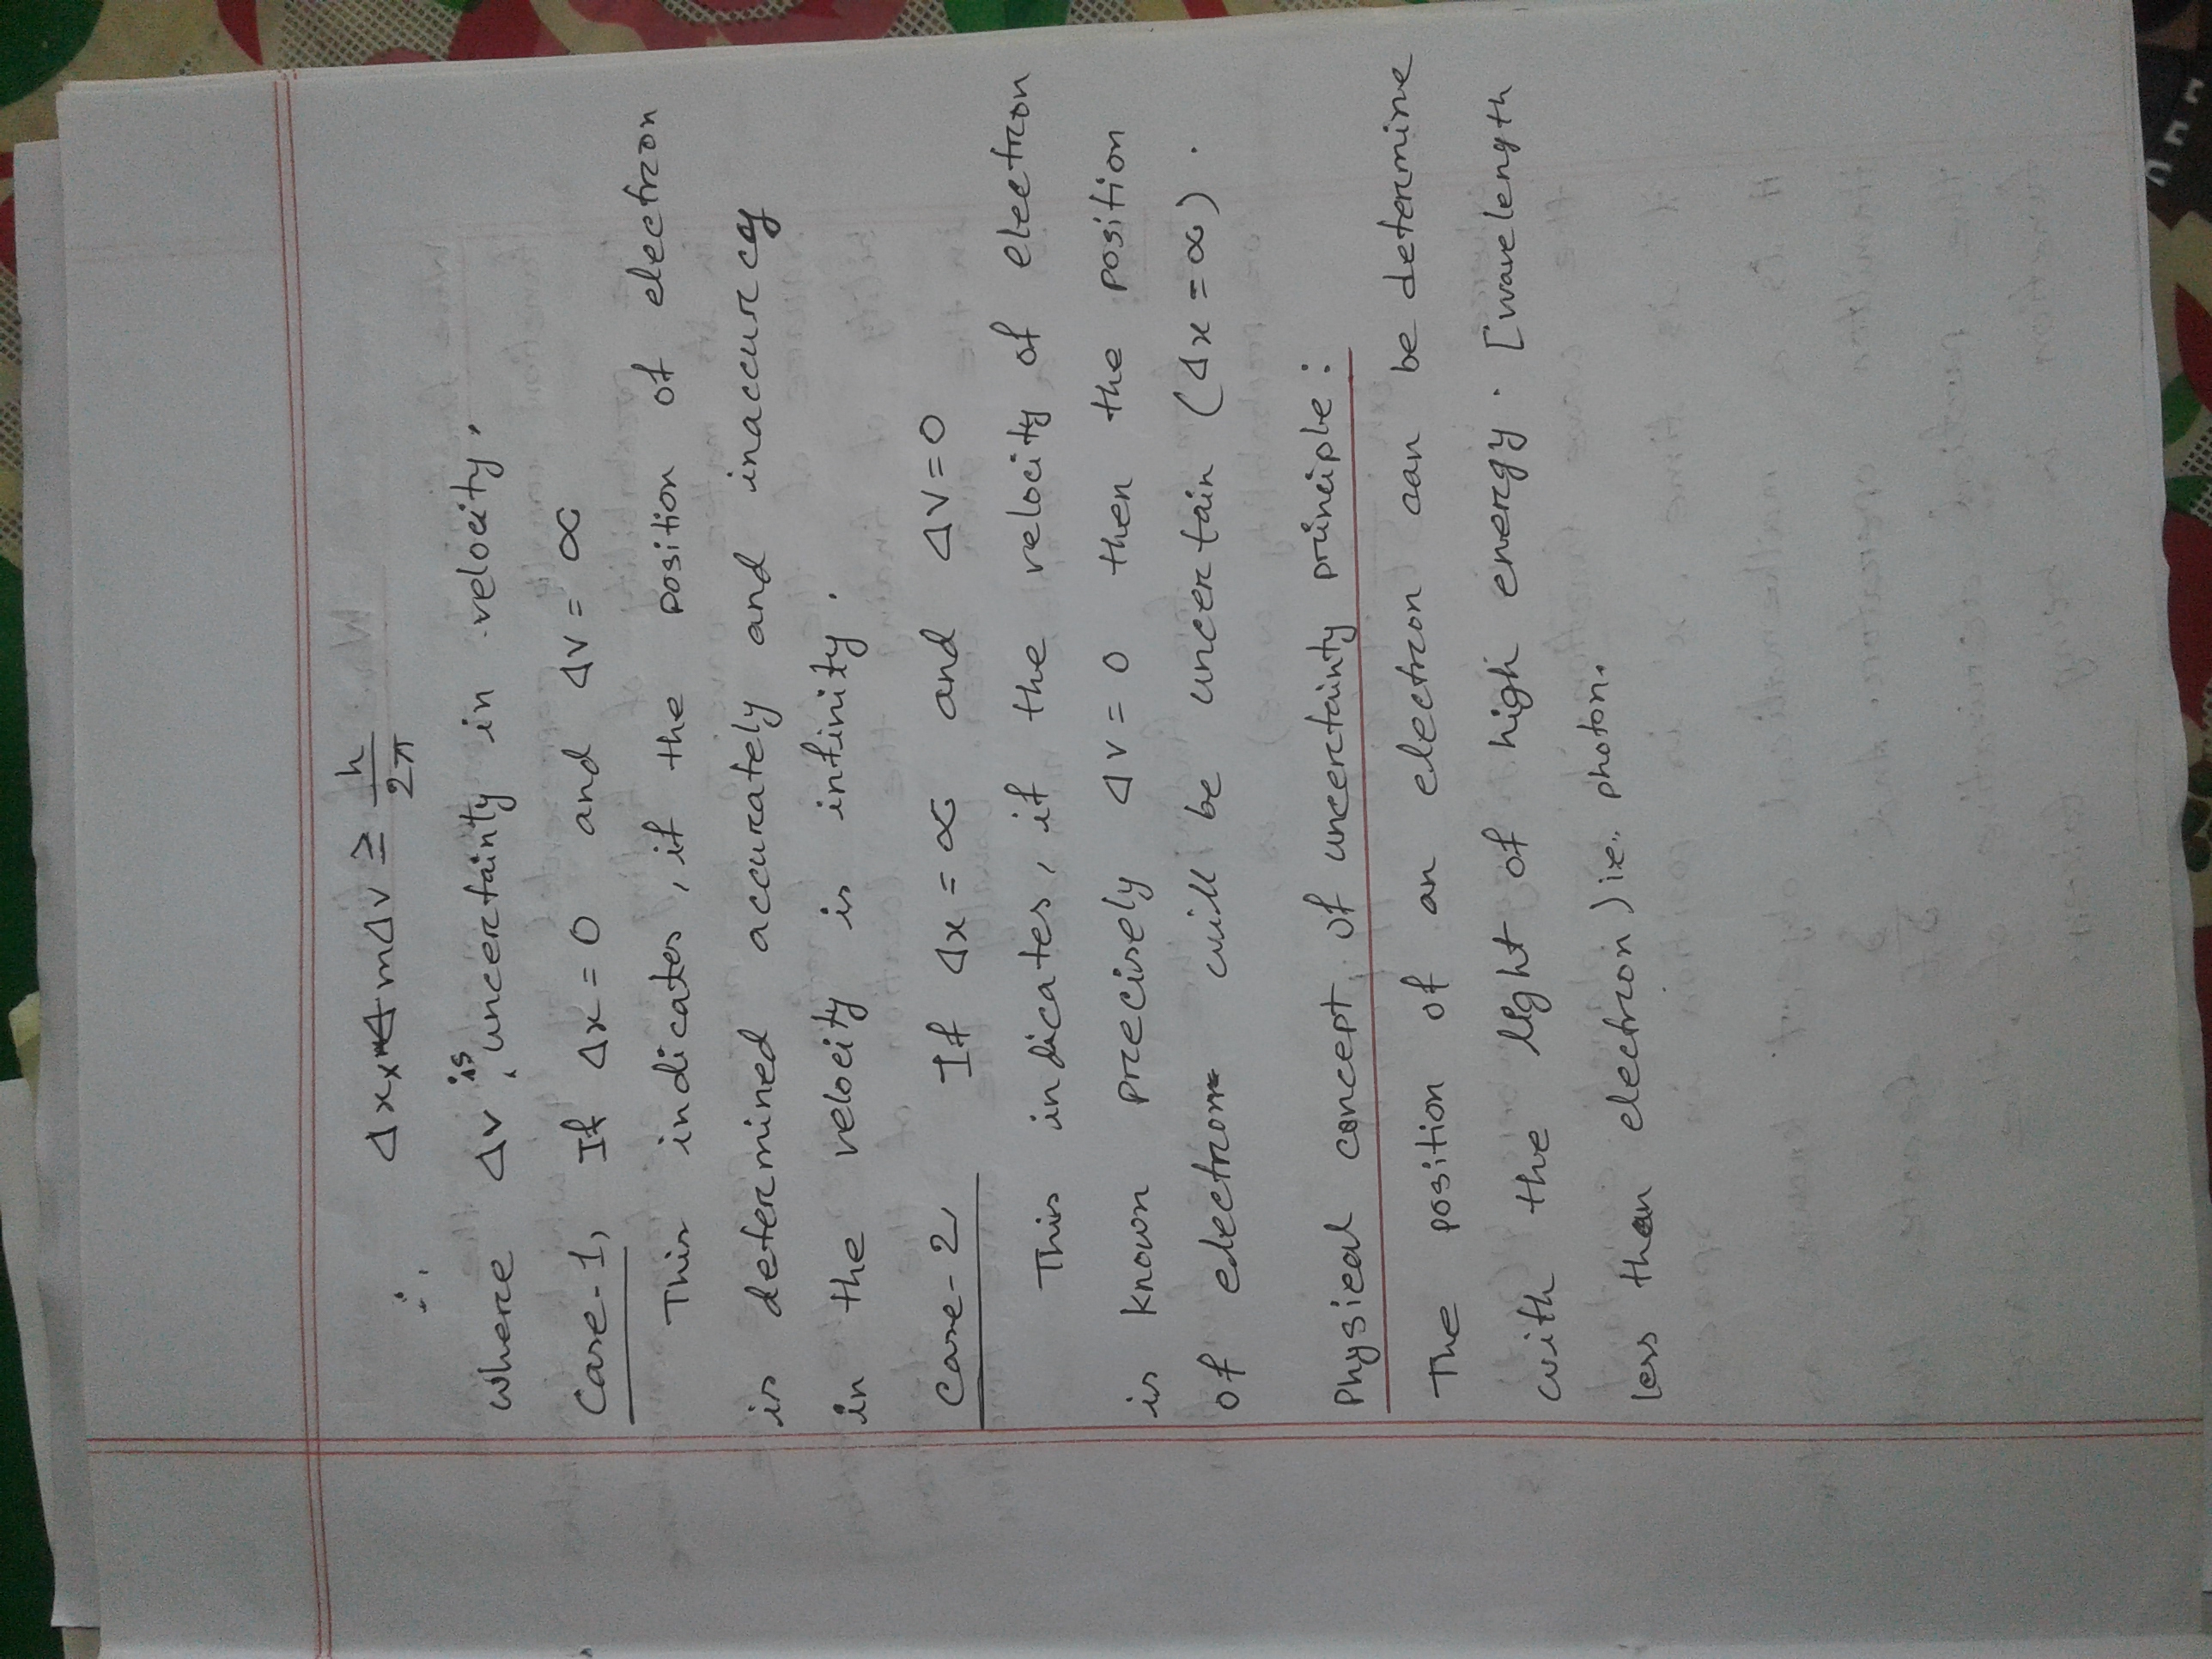 ∴ Δx × mΔv ≥ h/2π
where Δv is uncertainty in velocity.
Case-1, If Δx = 0 and Δv = ∞
This indicates, if the position of electron
is determined accurately and inaccurcy
in the velocity is infinity.
Case-2 If Δx = ∞ and Δv = 0
This indicates, if the velocity of electron
is known precisely Δv = 0 then the position
of electron will be uncertain (Δx = ∞).
Physical concept of uncertainty principle:
The position of an electron can be determine
with the light of high energy. [wavelength
less than electron) ie. photon.